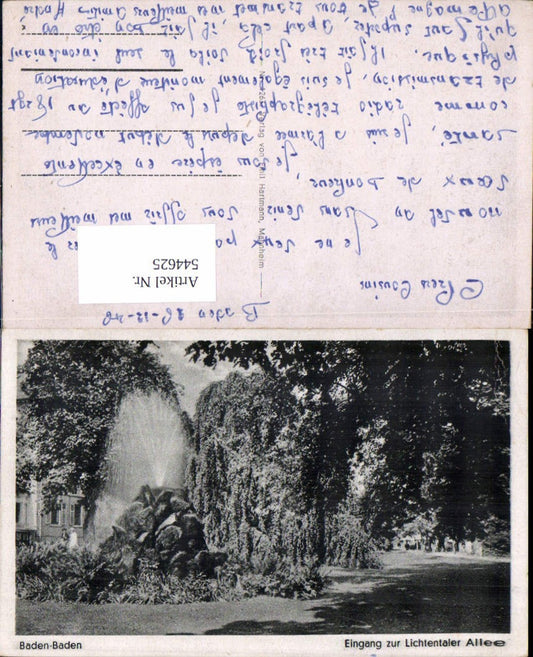 Baden 28-12-48
Chers Cousins
Je ne veux pas
nouvel an sans venir vous offrir mes meilleurs
vœux de bonheur,
Je vous espère en excellente
santé, je suis à l'armée depuis le début novembre
comme radio télégraphiste je suis affecté au 18
de transmission, je suis également moniteur d'éducation
physique. Il fait très froid voilà le seul inconvénient
qu'il faut supporter, à part cela il fait bon
Allemagne. Je vous transmet mes meilleurs amitiés
André
Verlag von Paul Hartmann, Mannheim
Artikel Nr.
544625
Baden-Baden
Eingang zur Lichtentaler Allee